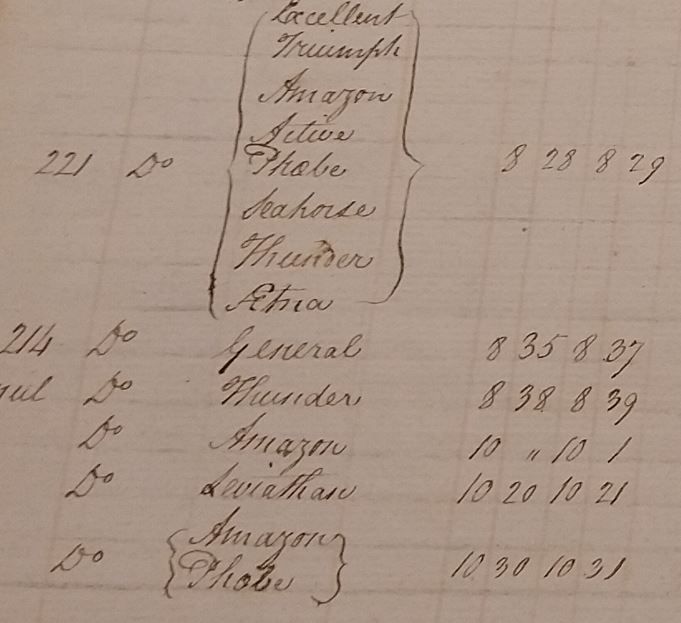 Excellent
Triumph
Amazon
Active
221 Do Phœbe 8 28 8 29
Seahorse
Thunder
Ætna
214 Do General 8 35 8 37
Do Thunder 8 38 8 39
Do Amazon 10 " 10 1
Do Leviathan 10 20 10 21
Amazon
Do Phœbe 10 30 10 31